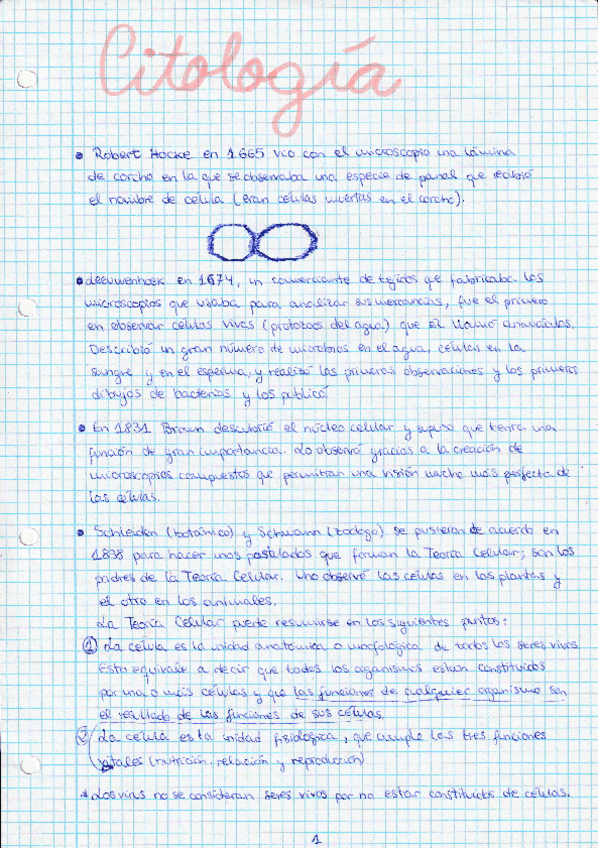 Citología
• Robert Hocke en 1665 vio con el microscopio una lámina
de corcho en la que se observaba una especie de panal que recibió
el nombre de celula (eran células muertas en el corcho).
• Leeuwenhoek en 1674, un comerciante de tejidos que fabricaba los
microscopios que usaba para analizar sus mercancías, fue el primero
en observar células vivas (protozoos del agua) que él llamó animáculos.
Describió un gran número de microbios en el agua, células en la
sangre y en el esperma, y realizó las primeras observaciones y los primeros
dibujos de bacterias y los publicó
• En 1831 Brown descubrió el núcleo celular y supuso que tenía una
función de gran importancia. Lo observó gracias a la creación de
microscopios compuestos que permitían una visión mucho más perfecta de
las células.
• Schleiden (botánico) y Schwann (zoólogo) se pusieron de acuerdo en
1838 para hacer unos postulados que forman la Teoría Celular; son los
padres de la Teoría Celular. Uno observó las células en las plantas y
el otro en los animales.
La Teoría Celular puede resumirse en los siguientes puntos:
① La célula es la unidad anatómica o morfológica de todos los seres vivos.
Esto equivale a decir que todos los organismos están constituidos
por una o más células y que las funciones de cualquier organismo son
el resultado de las funciones de sus células.
② La célula es la unidad fisiológica, que cumple las tres funciones
vitales (nutrición, relación y reproducción)
* Los virus no se consideran seres vivos por no estar constituidos de células.
1